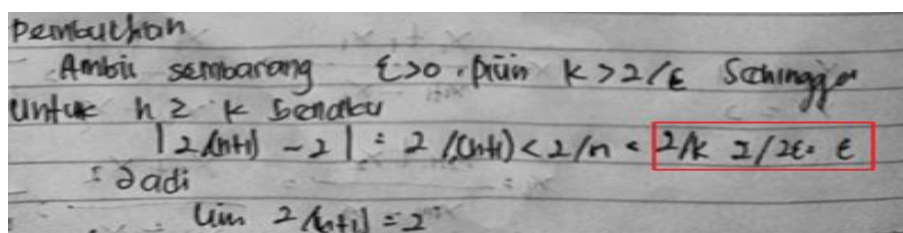 Pembuktian
Ambil sembarang ε>0. piün k>2/ε Sehingga
Untuk n ≥ k berlaku
|2/(n+1) - 2| = 2/(n+1) < 2/n < 2/k 2/2ε= ε
= Jadi
lim 2/(n+1) = 2